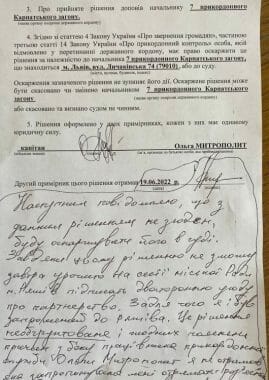 3. Про прийняте рішення доповів начальнику 7 прикордонного
Карпатського загону.
4. Згідно зі статтею 4 Закону України «Про звернення громадян», частиною
третьою статті 14 Закону України «Про прикордонний контроль» особа, якій
відмовлено у перетинанні державного кордону, має право оскаржити це
рішення за належністю до начальника 7 прикордонного Карпатського загону,
що знаходиться м. Львів, вул. Личаківська 74 (79010), або до суду.
Оскарження зазначеного рішення не зупиняє його дії. Оскаржене рішення
може бути скасовано чи змінено начальнику 7 прикордонного Карпатського
загону
або скасовано чи визнано судом не чинним.
5. Рішення оформлено у двох примірниках, кожен з яких має однакову
юридичну силу.
капітан Ольга МИТРОПОЛИТ
Другий примірник цього рішення отримав 19.06.2022 р.
повідомляю, що з
даним рішенням не згоден,
буду оскаржувати його в суді.
Завдяки цьому рішенню не зможу
завтра урочисто на сесії міської Ради
підписати двосторонню угоду
про партнерство. Задля чого я був
запрошений до Це рішення
необґрунтоване і жодних пояснень
з боку прикордонної
служби Ольги Митрополит я не отримав